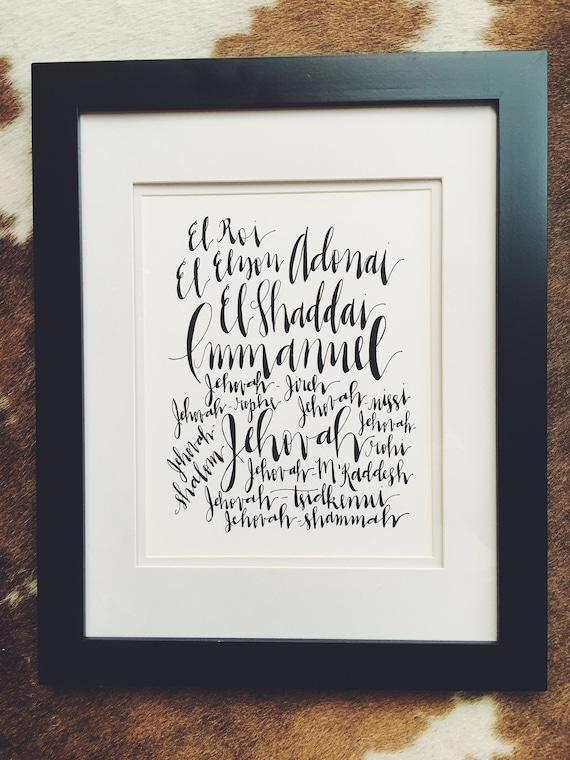 El Roi
El Elyon Adonai
El-Shaddai
Emmanuel
Jehovah-Jireh
Jehovah-rophe Jehovah-nissi
Jehovah-rohi
Jehovah
Jehovah shalom
Jehovah-M'Kaddesh
Jehovah-tsidkenui
Jehovah-shammah